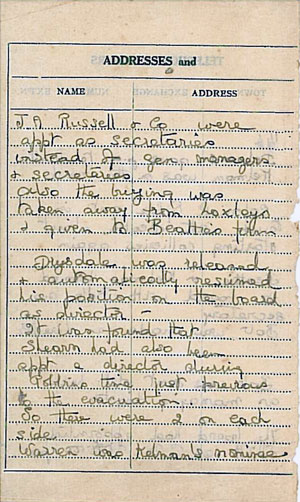 ADDRESSES and
NAME ADDRESS
J.A. Russell & Co were
appt as secretaries
instead of gen managers
& secretaries.
Also the buying was
taken away from Loxleys
& given to Beatties firm
Drysdale was released
& automatically resumed
his position on the board
as director –
It was found that
Shearn had also been
appt a director during
time just previous
to the evacuation.
So there were 2 on each
side
Warren was nominee